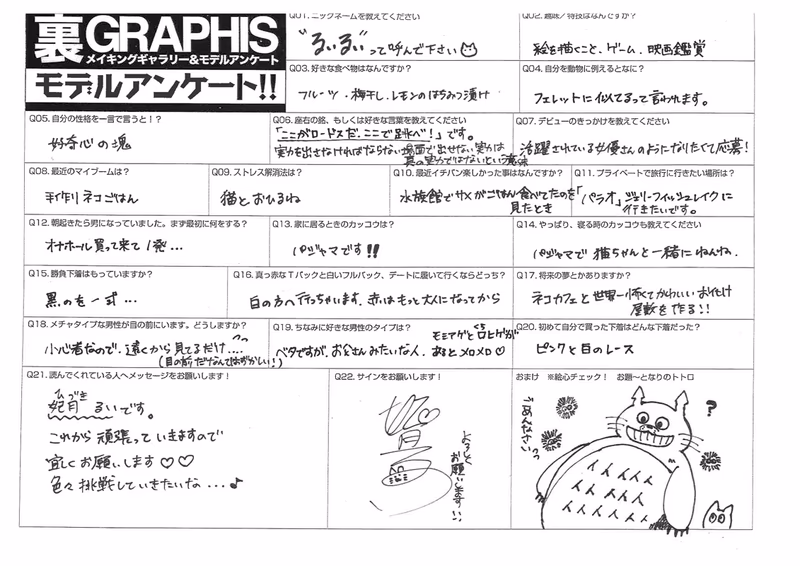 裏GRAPHIS
メイキングギャラリー&モデルアンケート
モデルアンケート!!
Q01. ニックネームを教えてください
"るいるい"って呼んで下さい
Q02. 趣味／特技はなんですか？
絵を描くこと、ゲーム、映画鑑賞
Q03. 好きな食べ物はなんですか？
フルーツ・梅干し・レモンのはちみつ漬け
Q04. 自分を動物に例えるとなに？
フェレットに似てるって言われます。
Q05. 自分の性格を一言で言うと！？
好奇心の塊
Q06. 座右の銘、もしくは好きな言葉を教えてください
「ここがロードスだ、ここで跳べ！」です。
実力を出さなければならない場面で出せない実力は
真の実力ではないという意味
Q07. デビューのきっかけを教えてください
活躍されている女優さんのようになりたくて応募！
Q08. 最近のマイブームは？
手作りネコごはん
Q09. ストレス解消法は？
猫とおひるね
Q10. 最近イチバン楽しかった事はなんですか？
水族館でサメがごはん食べてたのを
見たとき
Q11. プライベートで旅行に行きたい場所は？
「パラオ」ジェリーフィッシュレイクに
行きたいです。
Q12. 朝起きたら男になっていました。まず最初に何をする？
オナホール買って来て1発…
Q13. 家に居るときのカッコウは？
パジャマです!!
Q14. やっぱり、寝る時のカッコウも教えてください
パジャマで猫ちゃんと一緒にねんね.
Q15. 勝負下着はもっていますか？
黒のを一式…
Q16. 真っ赤なTバックと白いフルバック、デートに履いて行くならどっち？
白の方へ行っちゃいます。赤はもっと大人になってから
Q17. 将来の夢とかありますか？
ネコカフェと世界一怖くてかわいいお化け
屋敷を作る!!
Q18. メチャタイプな男性が目の前にいます。どうしますか？
小心者なので、遠くから見てるだけ….
(目の前だなんてはずかしい！)
Q19. ちなみに好きな男性のタイプは？
モミアゲと口ヒゲが
ベタですが、お父さんみたいな人、あるとメロメロ♡
Q20. 初めて自分で買った下着はどんな下着だった？
ピンクと白のレース
Q21. 読んでくれている人へメッセージをお願いします！
ひづき
妃月るいです。
これから頑張っていきますので
宜しくお願いします♡♡
色々挑戦していきたいな…♪
Q22. サインをお願いします！
よろしく
お願いします
おまけ ※絵心チェック！ お題～となりのトトロ
?